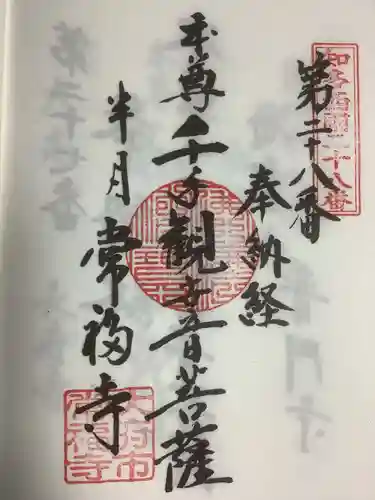 第二十八番
知多西国二十八番
奉納経
本尊千手観世音菩薩
半月
常福寺
大府市
常福寺